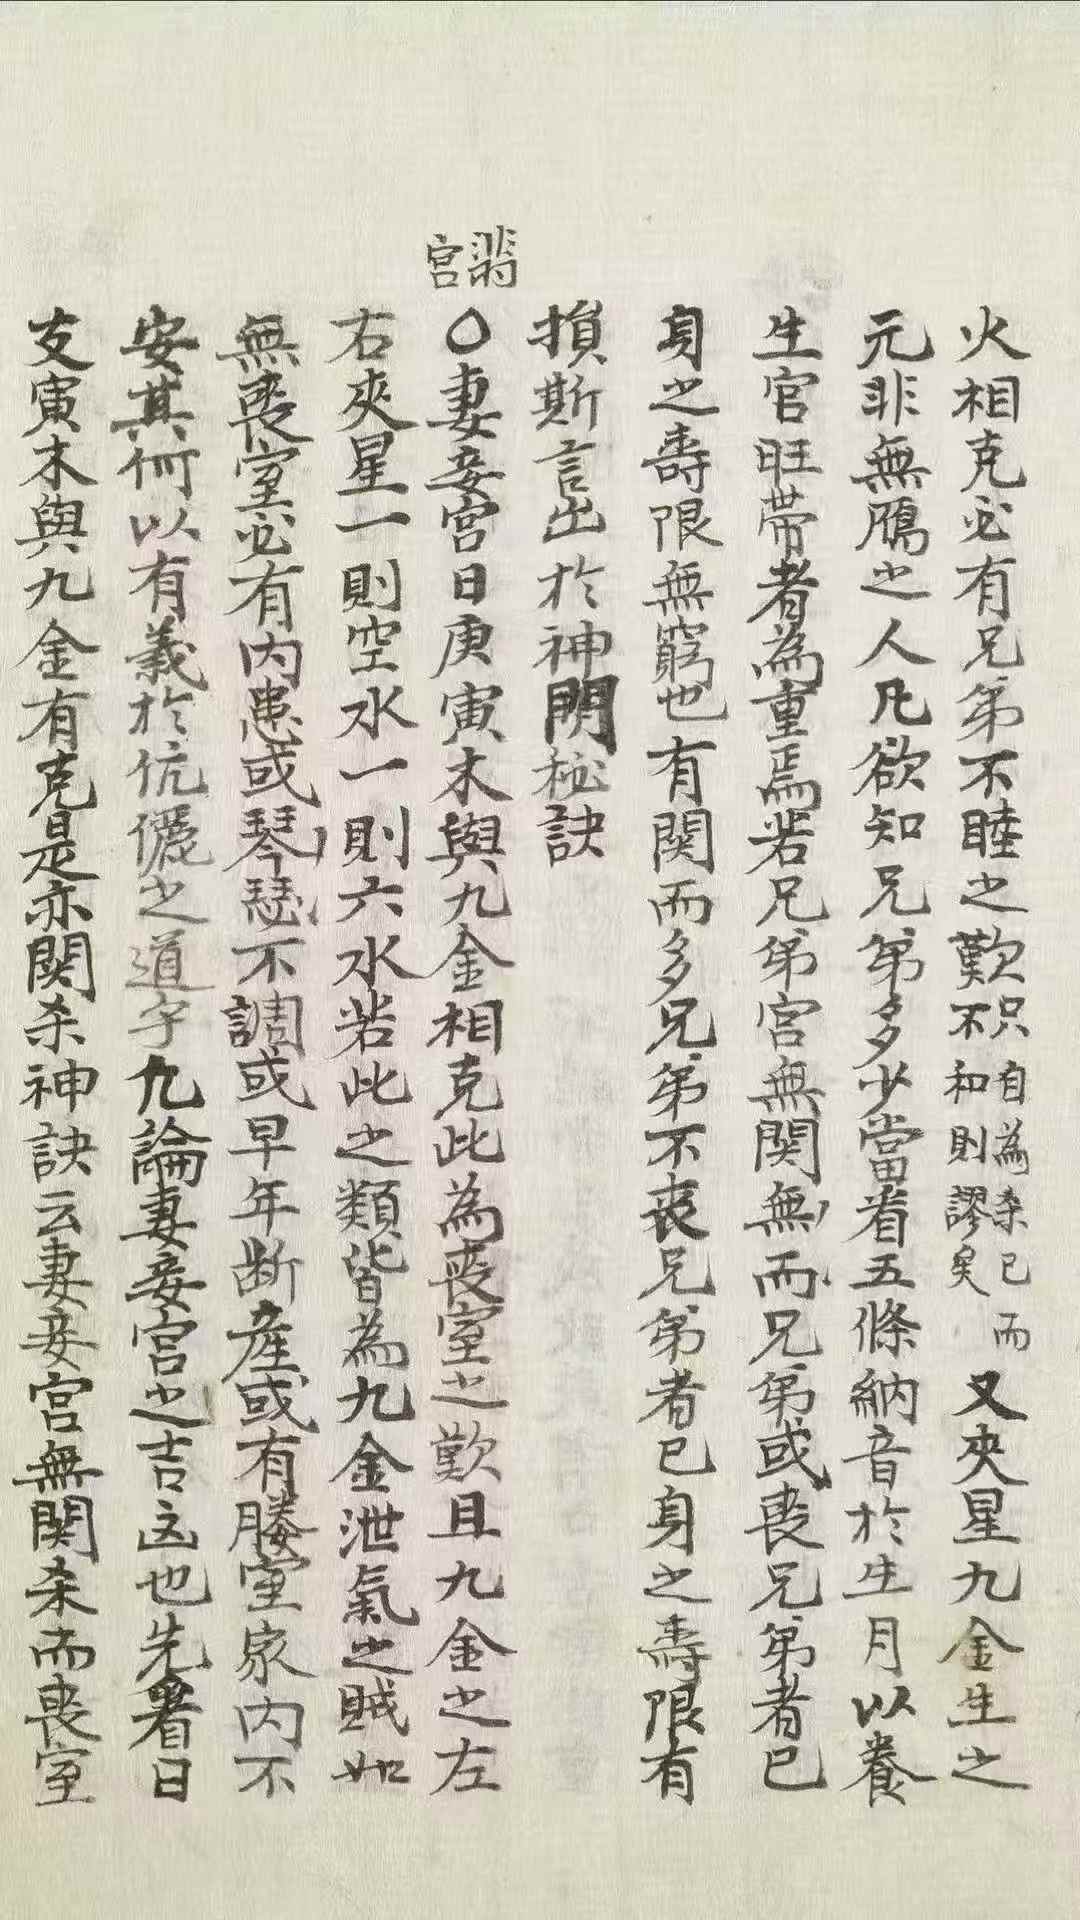 火相克必有兄弟不睦之歎只自為杀已而不和則謬矣又夾星九金生之
元非無鴈之人凡欲知兄弟多少當看五條納音於生月以養
生官旺帶者為重焉若兄弟宮無関無而兄弟或喪兄弟者已
身之壽限無窮也有関而多兄弟不喪兄弟者已身之壽限有
損斯言出於神門秘訣
宮
○妻妾宮日庚寅木與九金相克此為喪室之歎且九金之左
右夾星一則空水一則六水若此之類皆為九金泄氣之賊如
無喪室必有内患或琴瑟不調或早年断産或有媵室家内不
安其何以有義於伉儷之道乎九論妻妾宮之吉凶也先看日
支寅木與九金有克是亦関杀神訣云妻妾宮無関杀而喪室